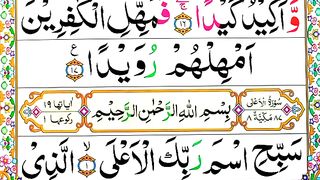 وَّاَكِيْدُ كَيْدًا ۚۖ ۝۱۶ فَمَهِّلِ الْكٰفِرِيْنَ
اَمْهِلْهُمْ رُوَيْدًا ۝۱۷ ع
سُوْرَةُ الْاَعْلٰى ۸۷ مَكِّيَّةٌ ۸ بِسْمِ اللّٰهِ الرَّحْمٰنِ الرَّحِيْمِ اٰيَاتُهَا ۱۹ رکوعہا ۱
سَبِّحِ اسْمَ رَبِّكَ الْاَعْلَى ۙ ۝۱ الَّذِيْ